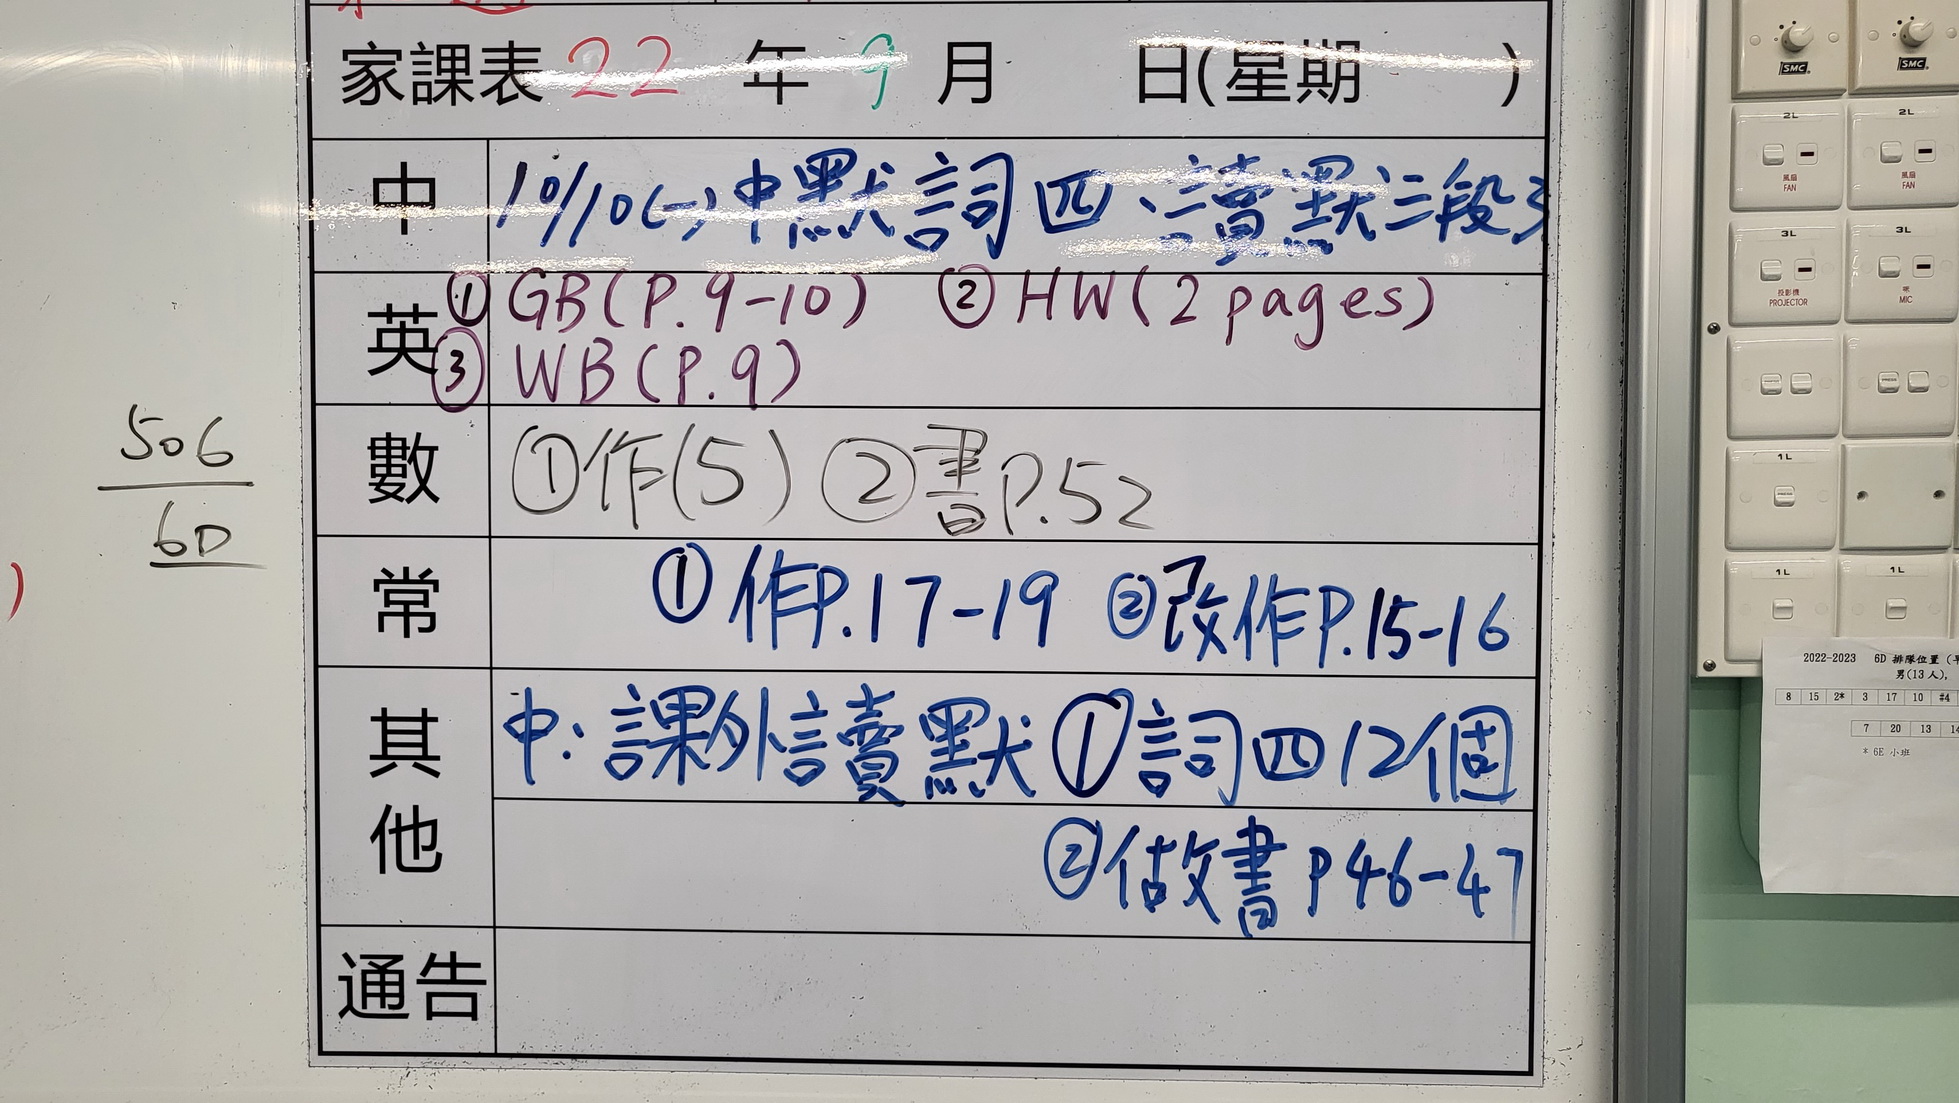 家課表 22 年 9 月 日(星期 )
中 10/10(一)中默詞四、讀默三段
英 ① GB(P.9-10) ② HW(2 pages)
③ WB(P.9)
數 ①作(5) ②書P.52
常 ①作P.17-19 ②改作P.15-16
其他 中:課外讀默①詞四12個
②做改書P46-47
通告
506
6D
)
SMC
SMC
2L
風扇
FAN
2L
風扇
FAN
3L
投影機
PROJECTOR
3L
咪
MIC
PRESS
1L
PRESS
1L
1L
2022-2023 6D 排隊位置
男(13人),
8 15 2* 3 17 10 #4
7 20 13
* 6E 小班